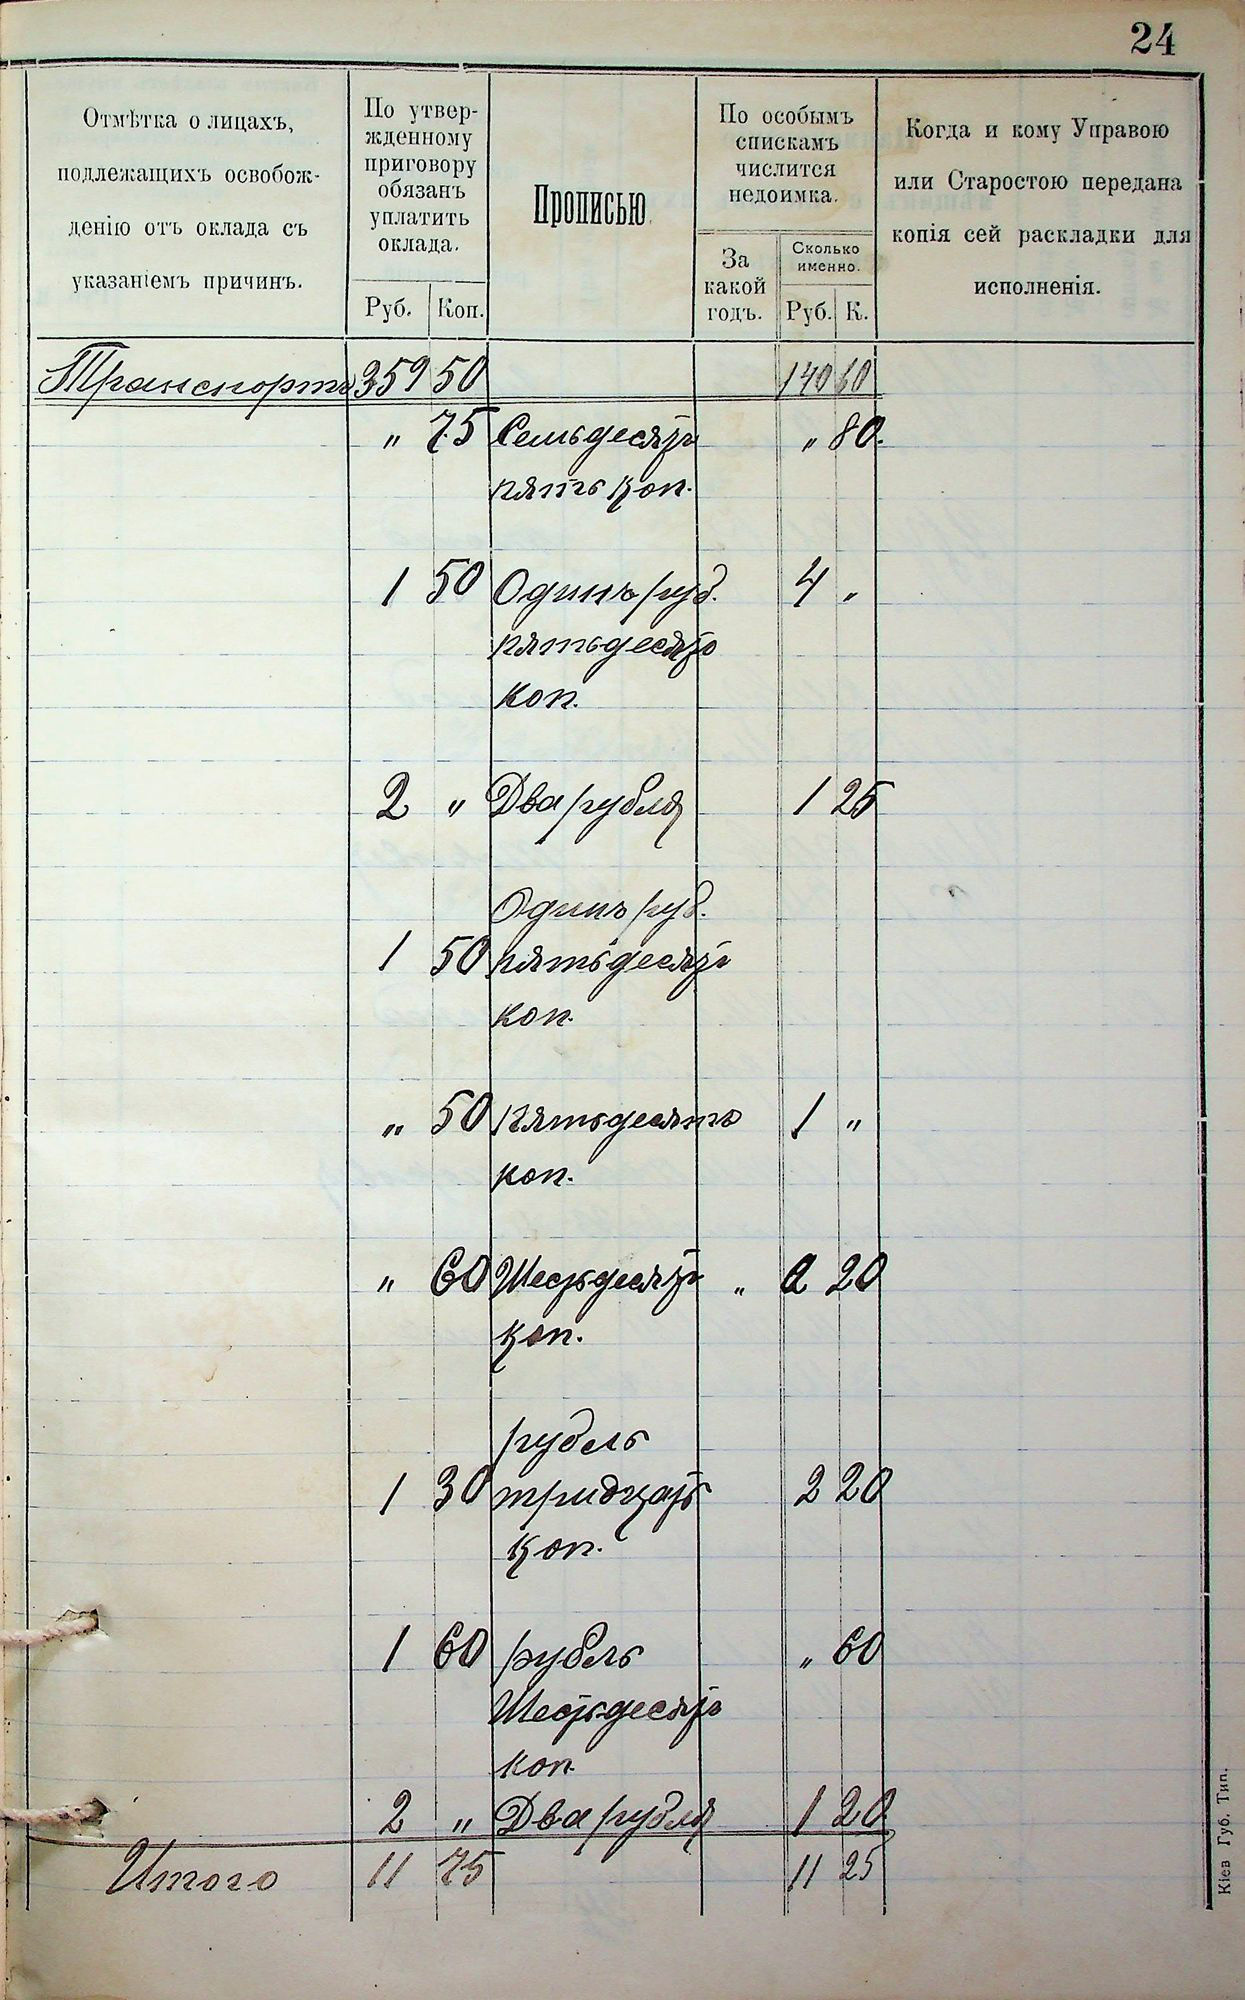 24
Отмѣтка о лицахъ,
подлежащихъ освобож-
денію отъ оклада съ
указаніемъ причинъ.
По утвер-
жденному
приговору
обязанъ
уплатить
оклада.
Руб. Коп.
Прописью.
По особымъ
спискамъ
числится
недоимка.
За
какой
годъ.
Сколько
именно.
Руб. К.
Когда и кому Управою
или Старостою передана
копія сей раскладки для
исполненія.
Транспортъ 359 50 140 60
" 75 Семьдесятъ " 80.
пять коп.
1 50 Одинъ руб. 4 "
пятьдесятъ
коп.
2 " Два рубля 1 25
Одинъ руб.
1 50 пятьдесятъ
коп.
" 50 Пятьдесятъ 1 "
коп.
" 60 Шестьдесятъ " 20
коп.
рубль
1 30 тридцать 2 20
коп.
1 60 рубль " 60
Шестьдесятъ
коп.
2 " Два рубля 1 20
Итого 11 75 11 25
Кіев Губ. Тип.